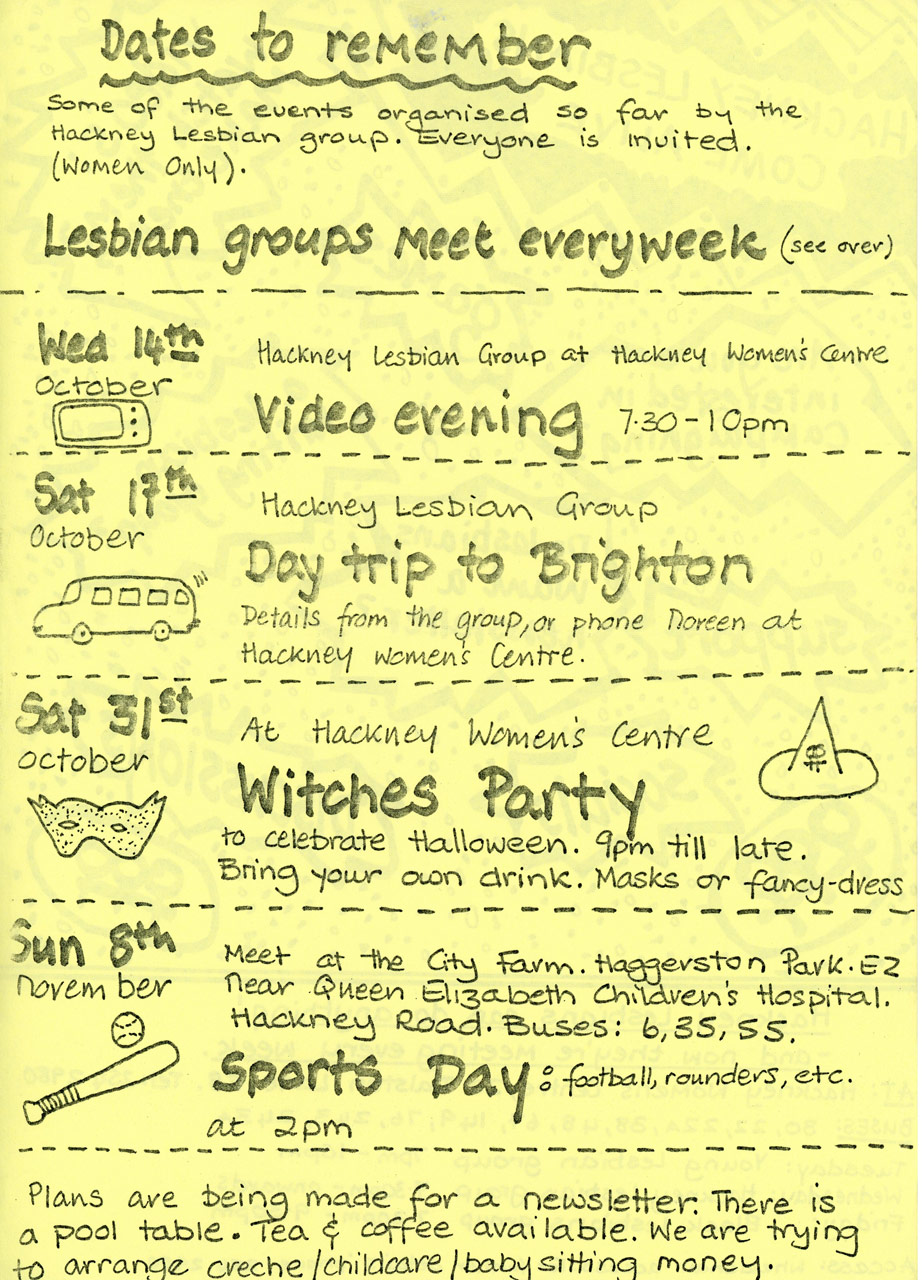 Dates to remember
Some of the events organised so far by the
Hackney Lesbian group. Everyone is invited.
(Women Only).
Lesbian groups meet everyweek (see over)
Wed 14th
October
Hackney Lesbian Group at Hackney Women's Centre
Video evening 7.30-10pm
Sat 17th
October
Hackney Lesbian Group
Day trip to Brighton
Details from the group, or phone Noreen at
Hackney Women's Centre.
Sat 31st
October
At Hackney Women's Centre
Witches Party
to celebrate Halloween. 9pm till late.
Bring your own drink. Masks or fancy-dress
Sun 8th
November
Meet at the City Farm. Haggerston Park. E2
Near Queen Elizabeth Children's Hospital.
Hackney Road. Buses: 6,35,55.
Sports Day: football, rounders, etc.
at 2pm
Plans are being made for a newsletter. There is
a pool table. Tea & coffee available. We are trying
to arrange creche/childcare/babysitting money.